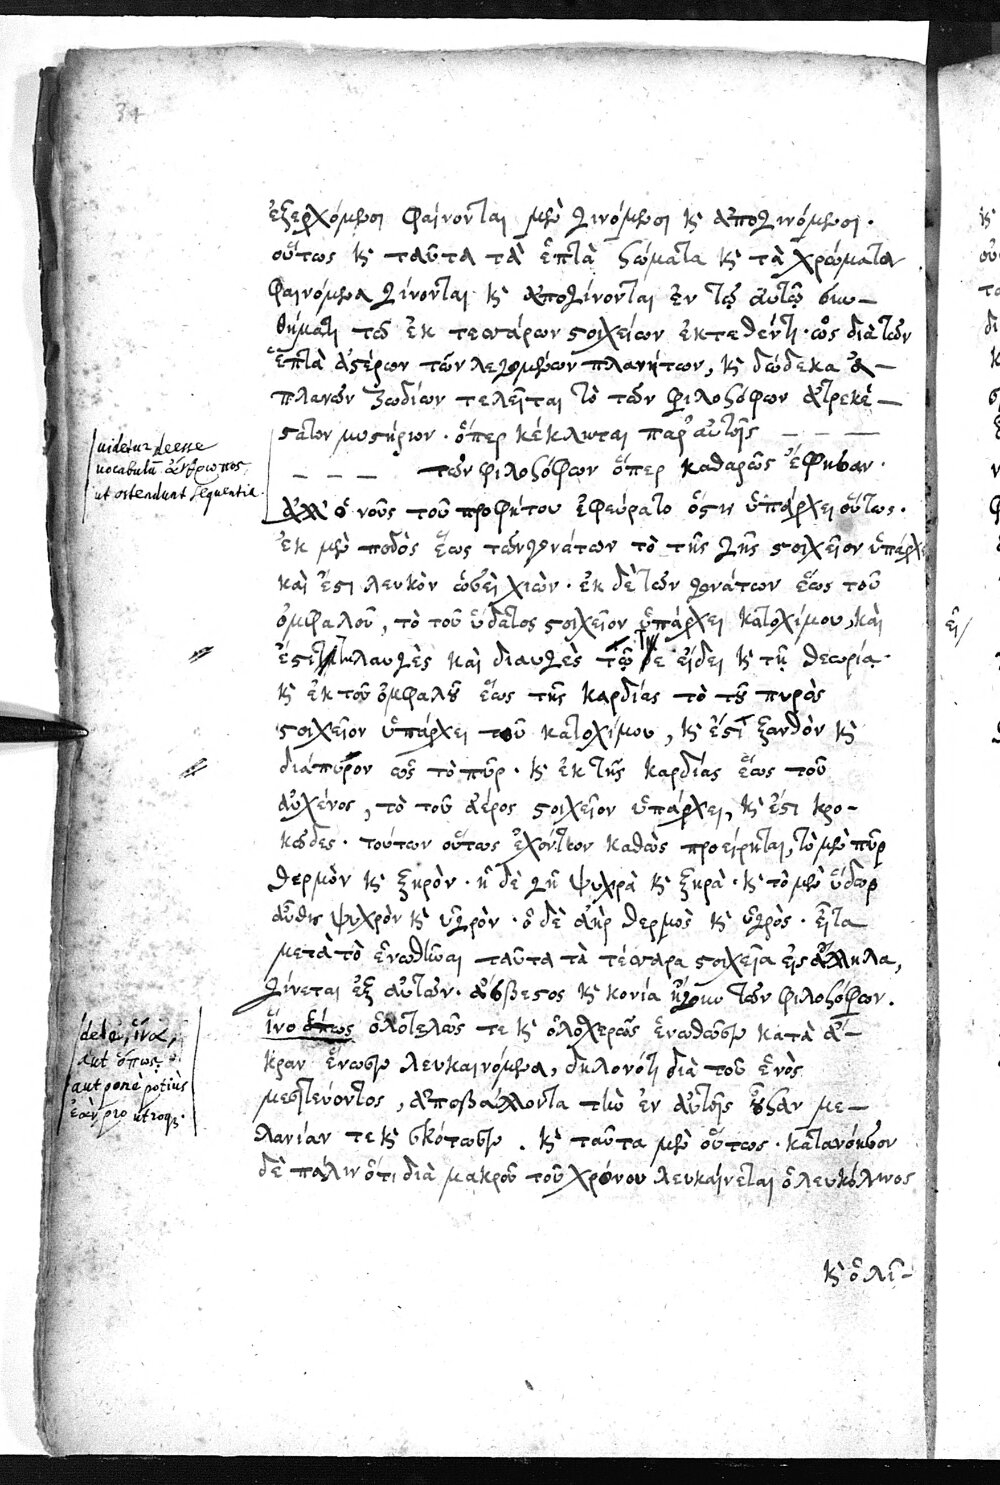 34
ἐξερχόμενοι φαίνονται μὲν γινόμενοι καὶ ἀπογινόμενοι·
οὕτως καὶ ταῦτα τὰ ἑπτὰ σώματα καὶ τὰ χρώματα
φαινόμενα γίνονται καὶ ἀπογίνονται ἐν τῷ αὐτῷ συν-
θήματι τῶ ἐκ τεσσάρων στοιχείων ἐκτεθέντι· ὡς διὰ τῶν
ἑπτὰ ἀστέρων τῶν λεγομένων πλανήτων, καὶ δώδεκα ἀ-
πλανῶν ζωδίων τελεῖται τὸ τῶν φιλοσόφων ἀτρεκέ-
στατον μυστήριον· ὅπερ κέκληται παρ' αὐτοῖς – – –
– – – τῶν φιλοσόφων ὅπερ καθαρῶς ἔφησαν·
uidetur deesse
uocabulū ἄνθρωπος
ut ostendunt sequentia.
ἀλλ' ὁ νοῦς τοῦ προφήτου ἐφεύρατο ὅστις ὑπάρχει οὕτως·
ἐκ μὲν ποδὸς ἕως τῶν γονάτων τὸ τῆς γῆς στοιχεῖον ὑπάρχει
καὶ ἔστι λευκὸν ὡσεὶ χιὼν· ἐκ δὲ τῶν γονάτων ἕως τοῦ
ὀμφαλοῦ, τὸ τοῦ ὕδατος στοιχεῖον ὑπάρχει κατοχίμου, καὶ
ἐστι τηλαυγὲς καὶ διαυγὲς τῷ τε εἴδει καὶ τῇ θεωρίᾳ·
καὶ ἐκ τοῦ ὀμφαλοῦ ἕως τῆς καρδίας τὸ τοῦ πυρὸς
στοιχεῖον ὑπάρχει τοῦ κατοχίμου, καὶ ἐστὶ ξανθὸν καὶ
διάπυρον ὡς τὸ πῦρ· καὶ ἐκ τῆς καρδίας ἕως τοῦ
αὐχένος, τὸ τοῦ ἀέρος στοιχεῖον ὑπάρχει, καὶ ἐστι κρο-
κῶδες· τούτων οὕτως ἐχόντων καθὼς προείρηται, τὸ μὲν πῦρ
θερμὸν καὶ ξηρὸν· ἡ δὲ γῆ ψυχρὰ καὶ ξηρὰ· καὶ τὸ μὲν ὕδωρ
αὖθις ψυχρὸν καὶ ὑγρὸν· ὁ δὲ ἀὴρ θερμὸς καὶ ὑγρὸς· εἶτα
μετὰ τὸ ἑνωθῆναι ταῦτα τὰ τέσσαρα στοιχεῖα εἰς ἄλληλα,
γίνεται ἐξ αὐτῶν· ἄσβεστος καὶ κονία ἤγουν τῶν φιλοσόφων.
ἵνα ὅπως ὁλοτελῶς τε καὶ ὁλοχερῶς ἑνωθῶσιν κατὰ ἄ-
dele, ἵνα,
aut ὅπως,
aut pone potiùs
ἐὰν pro utroq.
κραν ἕνωσιν λευκαινόμενα, δηλονότι διὰ τοῦ ἑνὸς
μεσιτεύοντος, ἀποβάλλοντα τὴν ἐν αὐτοῖς οὖσαν με-
λανίαν τε καὶ σκότωσιν. καὶ ταῦτα μὲν οὕτως· κατανόησον
δὲ πάλιν ὅτι διὰ μακροῦ τοῦ χρόνου λευκαίνεται ὁ λευκόλινος
καὶ ὁ λι-